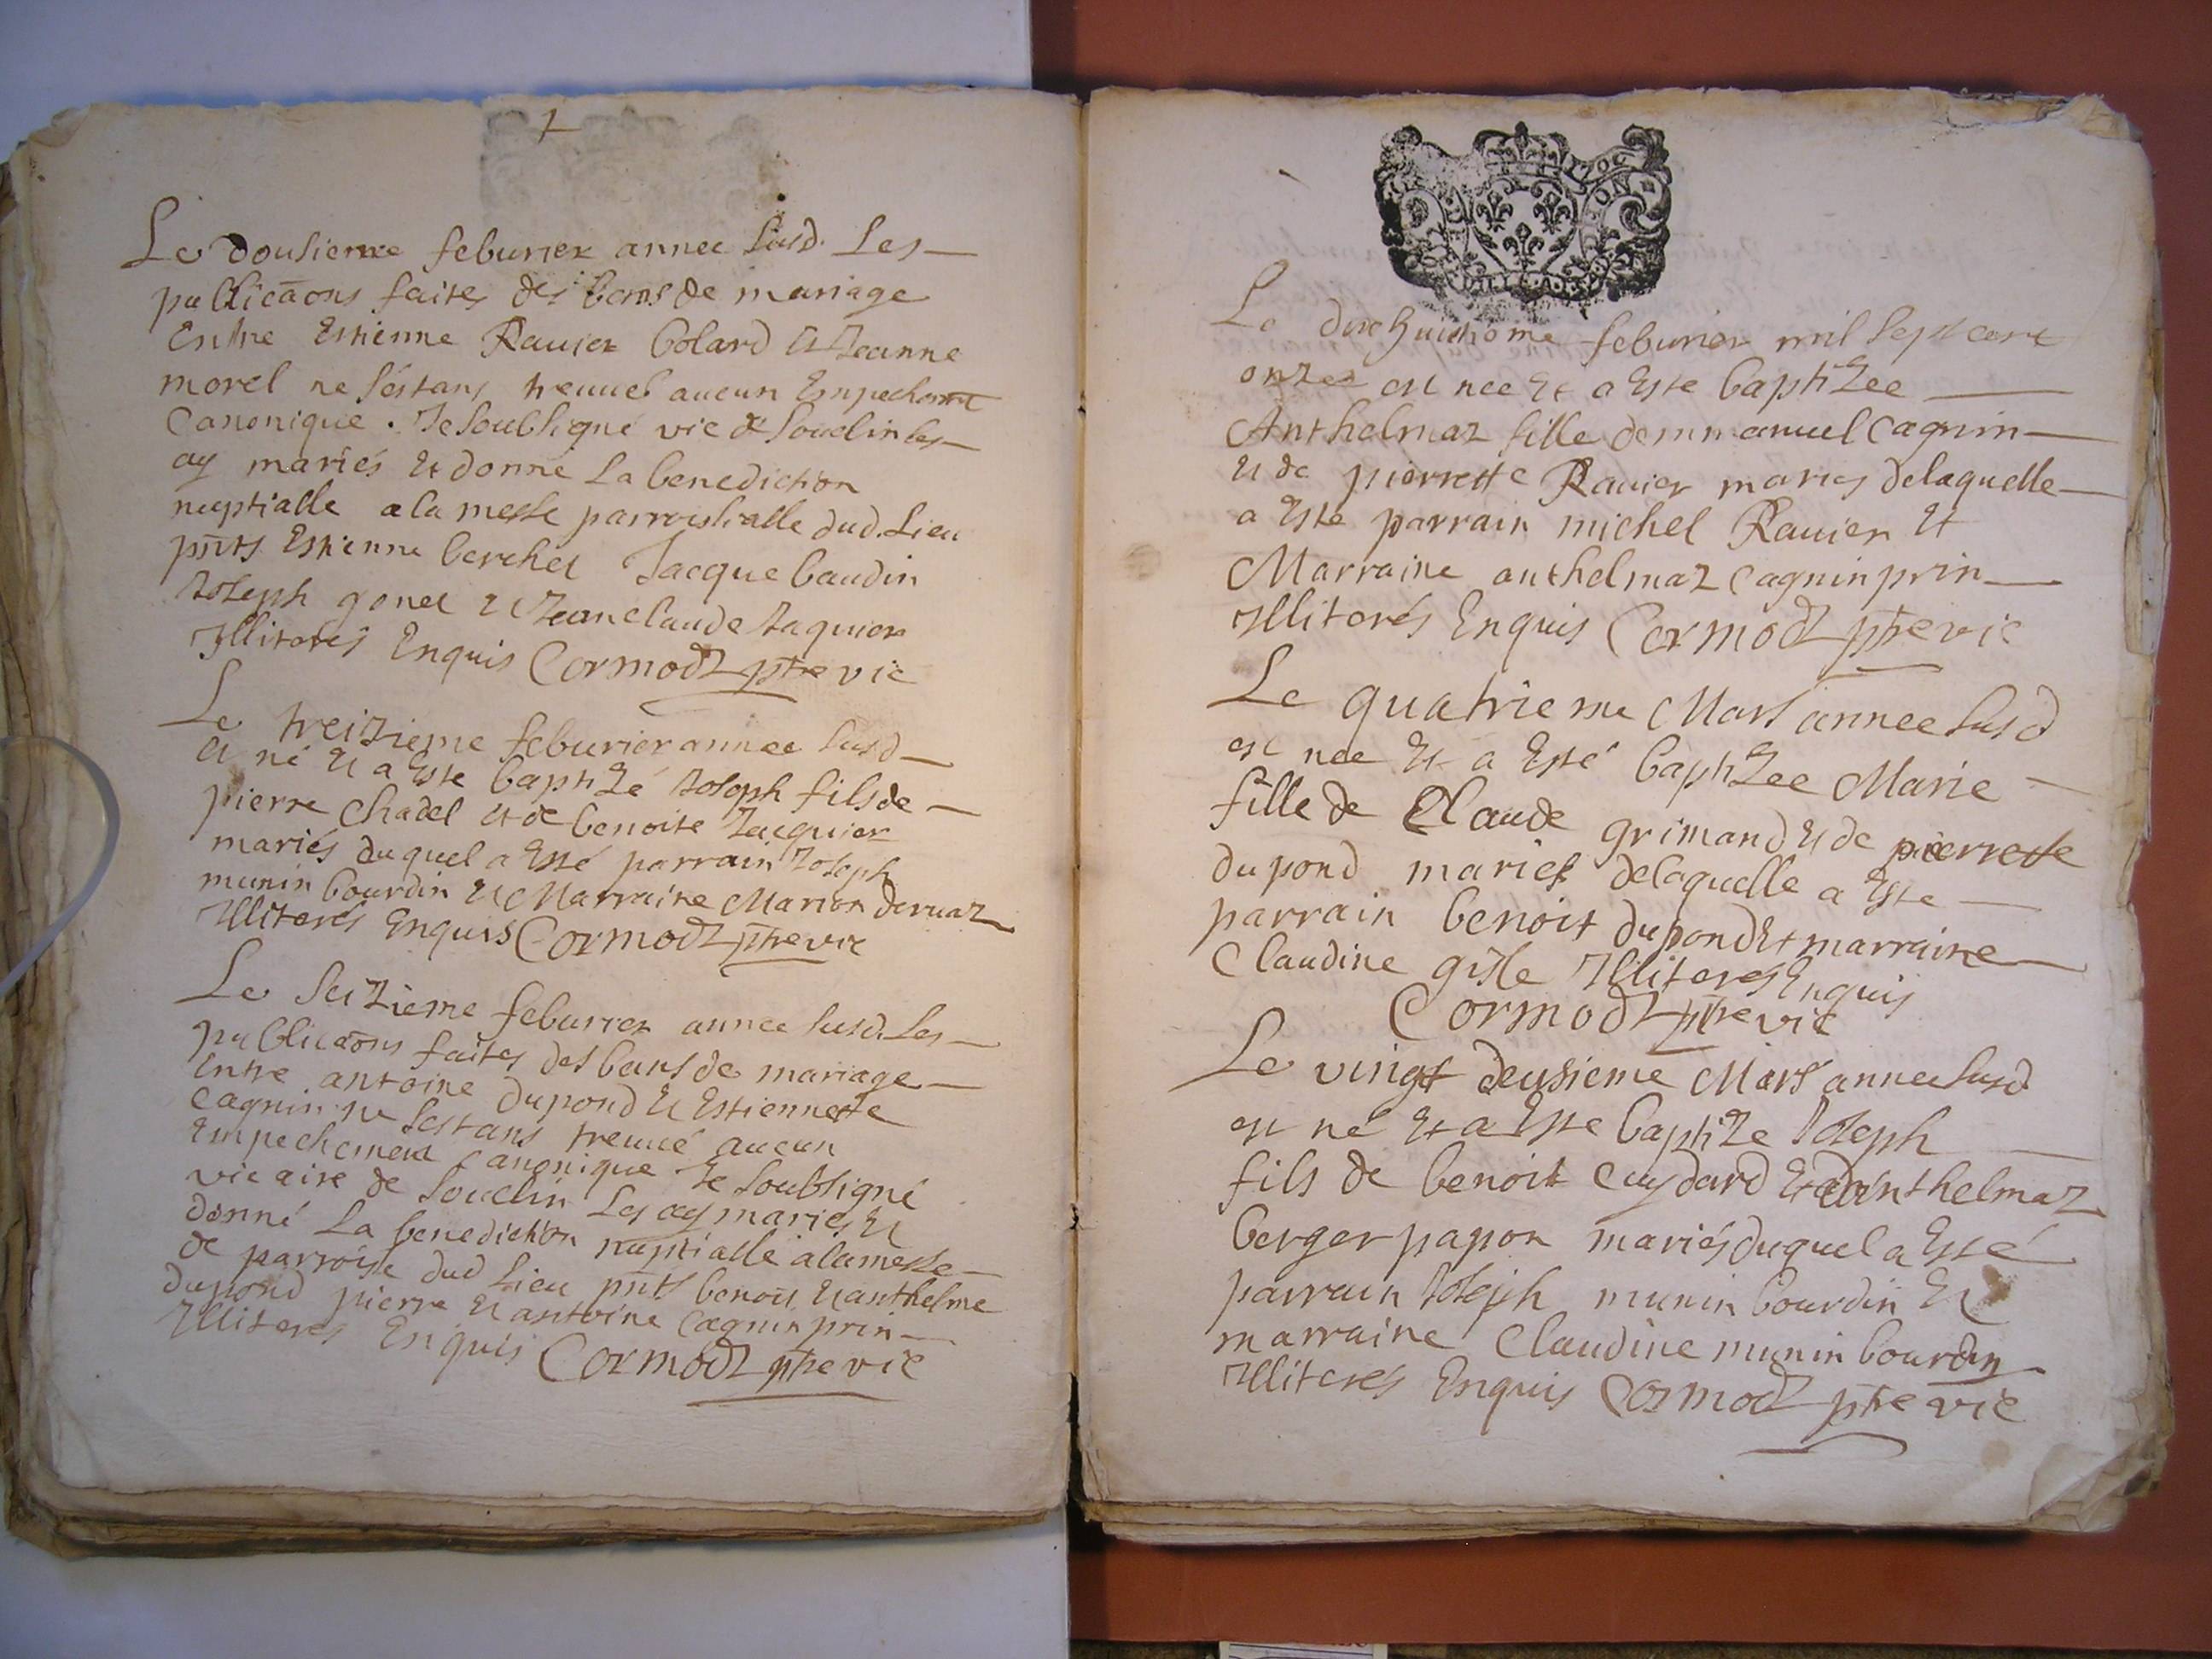 Le dousieme feburier annee susd. Les
publicãons faites des bans de mariage
Entre Estienne Ravier bolard Et Jeanne
morel ne séstans treuué aucun Empechemt
Canonique. Je soubsigné vic de souclin les
ay mariés Et donné La benediction
nuptialle a la messe parroissialle dud. Lieu
pñts Estienne berchet Jacque baudin
Joseph gonet Et Jean claude Jaquier
Illiterés Enquis Cormod ptre vic
Le treizieme feburier annee susd
Et né Et a Esté baptizé Joseph fils de
pierre chadel et de benoite Jacquier
mariés duquel a Esté parrain Joseph
munin bourdin Et Marraine Marion deruaz
Illiterés Enquis Cormod ptre vic
Le seizieme feburier annee susd. Les
publicãons faites des bans de mariage
Entre antoine dupond Et Estiennette
Cagnin ne sestans treuué aucun
Empechement Canonique Je soubsigné
vicaire de souclin Les ay mariés Et
donné La benediction nuptialle a la messe
de parroisse dud Lieu pñts benoit Et anthelme
dupond pierre Et antoine Cagnin prin
Illiteres Enquis Cormod ptre vic
Le dixhuictieme feburier mil sept cent
onze est nee Et a Este baptizee
Anthelmaz fille demmanuel Cagnin
Et de pierrette Ravier maries delaquelle
a Esté parrain michel Ravier Et
Marraine anthelmaz Cagnin prin
Illiterés Enquis Cormod ptre vic
Le quatrieme Mars annee susd
est nee Et a Esté baptizee Marie
fille de Claude grimand Et de pierrette
dupond mariés delaquelle a Este
parrain benoit dupond Et marraine
Claudine gisle Illiterés Enquis
Cormod ptre vic
Le vingt deusieme Mars annee susd
est né Et a Este baptize Joseph
fils de benoit Cuydard Et danthelmaz
berger papon mariés duquel a Esté
parrain Joseph munin bourdin Et
marraine Claudine munin bourdin
Illiteres Enquis Cormod ptre vic